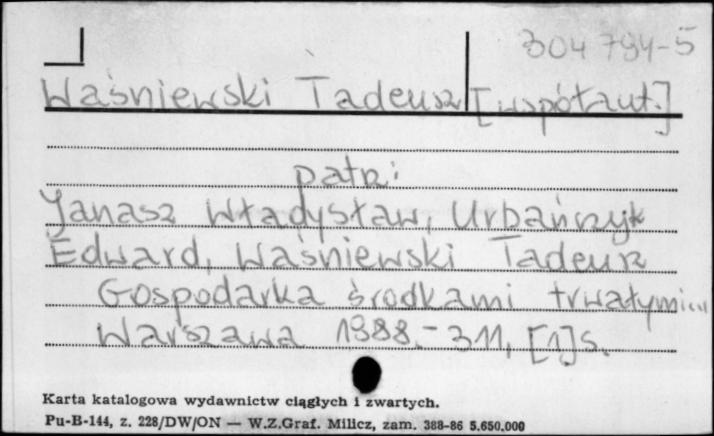 304 794-5
Waśniewski Tadeusz [współaut.]
patrz:
Janasz Władysław, Urbańczyk
Edward, Waśniewski Tadeusz
Gospodarka środkami trwałymi...
Warszawa 1988.- 311, [1]s.
Karta katalogowa wydawnictw ciągłych i zwartych.
Pu-B-144, z. 228/DW/ON — W.Z.Graf. Milicz, zam. 388-86 5.650.000